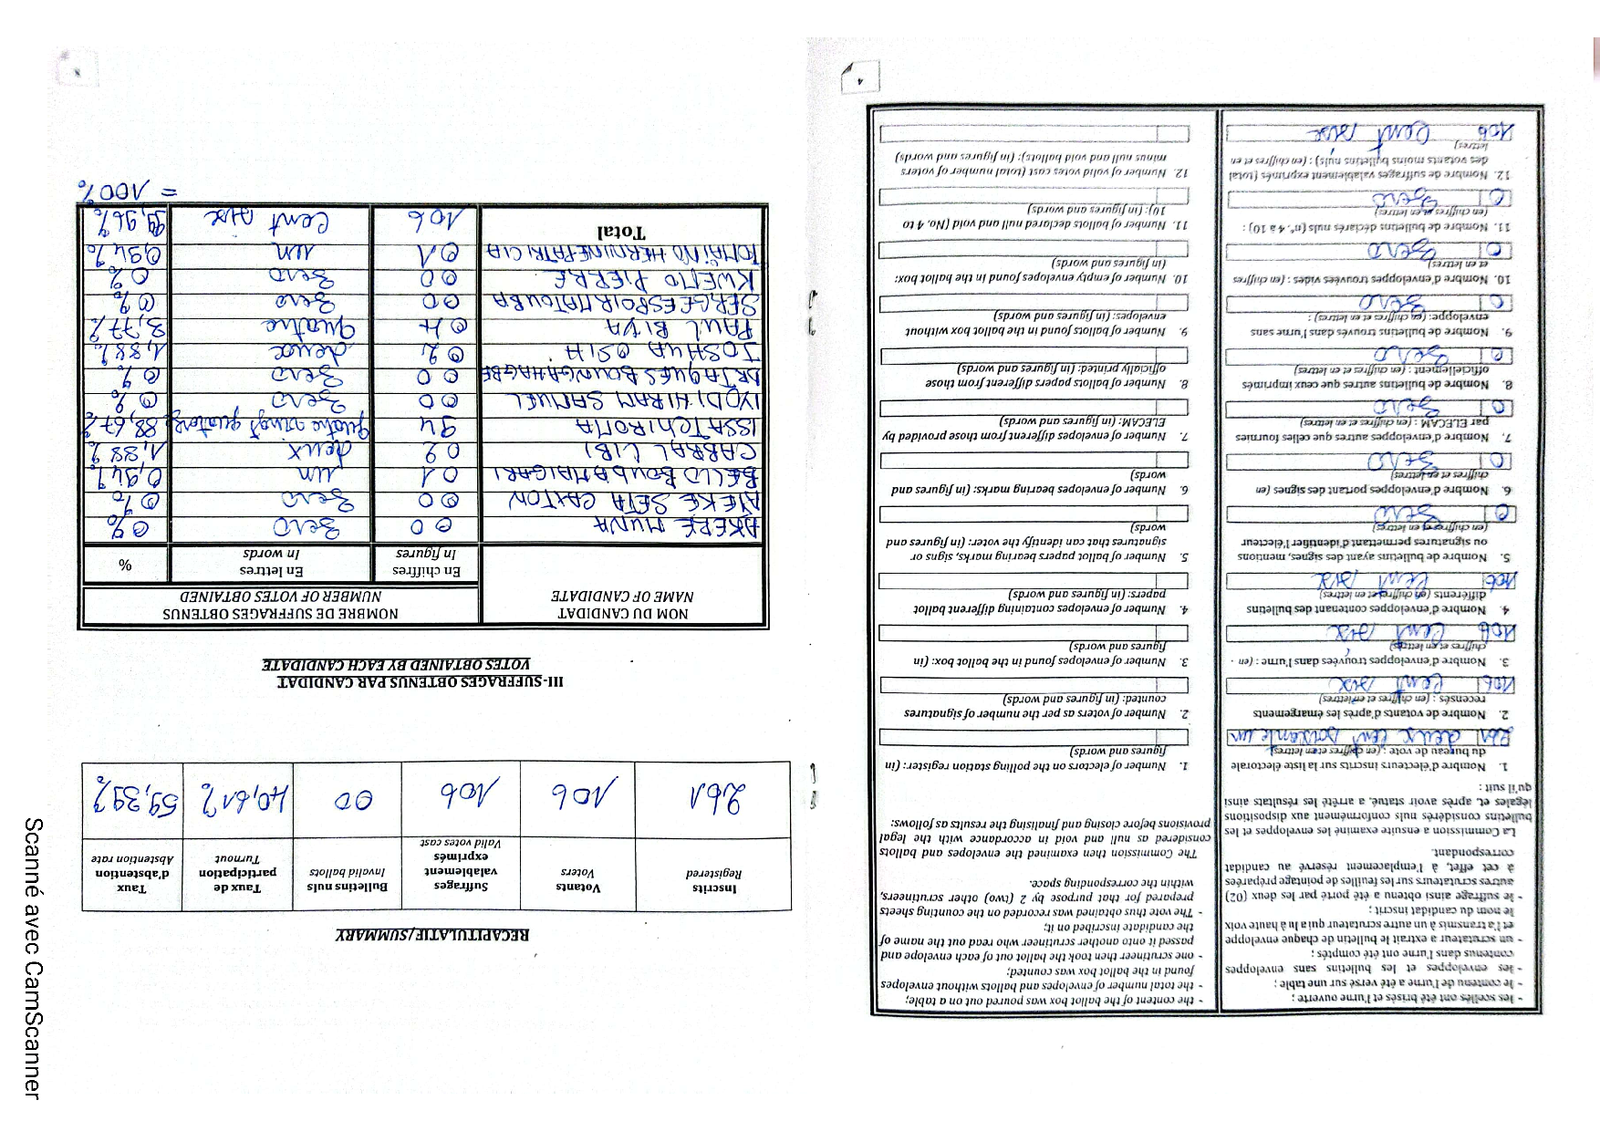 4
- les scellés ont été brisés et l'urne ouverte ;
- le contenu de l'urne a été versé sur une table ;
- les enveloppes et les bulletins sans enveloppes
contenus dans l'urne ont été comptés ;
- un scrutateur a extrait le bulletin de chaque enveloppe
et l'a transmis à un autre scrutateur qui a lu à haute voix
le nom du candidat inscrit ;
- le suffrage ainsi obtenu a été porté par les deux (02)
autres scrutateurs sur les feuilles de pointage préparées
à cet effet, à l'emplacement réservé au candidat
correspondant.
La Commission a ensuite examiné les enveloppes et les
bulletins considérés nuls conformément aux dispositions
légales et, après avoir statué, a arrêté les résultats ainsi
qu'il suit :
1. Nombre d'électeurs inscrits sur la liste électorale
du bureau de vote : (en chiffres et en lettres)
261 deux cent soixante un
2. Nombre de votants d'après les émargements
recensés : (en chiffres et en lettres)
106 Cent six
3. Nombre d'enveloppes trouvées dans l'urne : (en
chiffres et en lettres)
106 Cent six
4. Nombre d'enveloppes contenant des bulletins
différents (en chiffres et en lettres)
106 Cent six
5. Nombre de bulletins ayant des signes, mentions
ou signatures permettant d'identifier l'électeur
(en chiffres et en lettres)
0 Zero
6. Nombre d'enveloppes portant des signes (en
chiffres et en lettres)
0 Zero
7. Nombre d'enveloppes autres que celles fournies
par ELECAM : (en chiffres et en lettres)
0 Zero
8. Nombre de bulletins autres que ceux imprimés
officiellement : (en chiffres et en lettres)
0 Zero
9. Nombre de bulletins trouvés dans l'urne sans
enveloppe: (en chiffres et en lettres) :
0 Zero
10. Nombre d'enveloppes trouvées vides : (en chiffres
et en lettres)
0 Zero
11. Nombre de bulletins déclarés nuls (n°. 4 à 10) :
(en chiffres et en lettres)
0 Zero
12. Nombre de suffrages valablement exprimés (total
des votants moins bulletins nuls) : (en chiffres et en
lettres)
106 Cent six
- the content of the ballot box was poured out on a table;
- the total number of envelopes and ballots without envelopes
found in the ballot box was counted;
- one scrutineer then took the ballot out of each envelope and
passed it onto another scrutineer who read out the name of
the candidate inscribed on it;
- The vote thus obtained was recorded on the counting sheets
prepared for that purpose by 2 (two) other scrutineers,
within the corresponding space.
The Commission then examined the envelopes and ballots
considered as null and void in accordance with the legal
provisions before closing and finalising the results as follows:
1. Number of electors on the polling station register: (in
figures and words)
2. Number of voters as per the number of signatures
counted: (in figures and words)
3. Number of envelopes found in the ballot box: (in
figures and words)
4. Number of envelopes containing different ballot
papers: (in figures and words)
5. Number of ballot papers bearing marks, signs or
signatures that can identify the voter: (in figures and
words)
6. Number of envelopes bearing marks: (in figures and
words)
7. Number of envelopes different from those provided by
ELECAM: (in figures and words)
8. Number of ballots papers different from those
officially printed: (in figures and words)
9. Number of ballots found in the ballot box without
envelopes: (in figures and words)
10. Number of empty envelopes found in the ballot box:
(in figures and words)
11. Number of ballots declared null and void (No. 4 to
10): (in figures and words)
12. Number of valid votes cast (total number of voters
minus null and void ballots): (in figures and words)
RECAPITULATIF/SUMMARY
Inscrits Registered | Votants Voters | Suffrages valablement exprimés Valid votes cast | Bulletins nuls Invalid ballots | Taux de participation Turnout | Taux d'abstention Abstention rate
261 | 106 | 106 | 00 | 40,61% | 59,39%
III-SUFFRAGES OBTENUS PAR CANDIDAT
VOTES OBTAINED BY EACH CANDIDATE
NOM DU CANDIDAT NAME OF CANDIDATE | NOMBRE DE SUFFRAGES OBTENUS NUMBER OF VOTES OBTAINED
En chiffres In figures | En lettres In words | %
AKERE MUNA 00 Zero 0%
ATEKE SETA CAXTON 00 Zero 0%
BELLO BOUBA MAIGARI 01 un 0,94%
CABRAL LIBI 02 deux 1,88%
ISSA TCHIROMA 94 quatre vingt quatorze 88,67%
IYODI HIRAM SAMUEL 00 Zero 0%
DR JAQUES BOUNGAHAGBE 00 Zero 0%
JOSHUA OSIH 02 deux 1,88%
PAUL BIYA 04 quatre 3,77%
SERGE ESPOIR MATOUBA 00 Zero 0%
KWEMO PIERRE 00 Zero 0%
TOMAINO HERMINE PATRICIA 01 un 0,94%
Total 106 Cent six 99,96%
= 100%
Scanné avec CamScanner